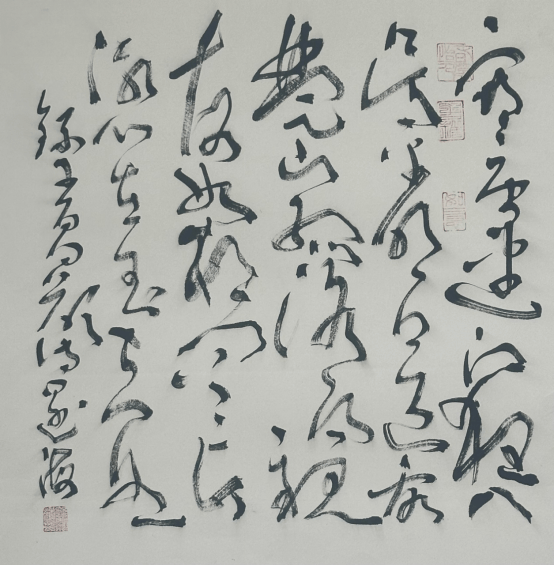 寒雨連江夜入
吴平明送客
楚山孤洛陽親
友如相問一片
冰心在玉壺
錄王昌齡詩